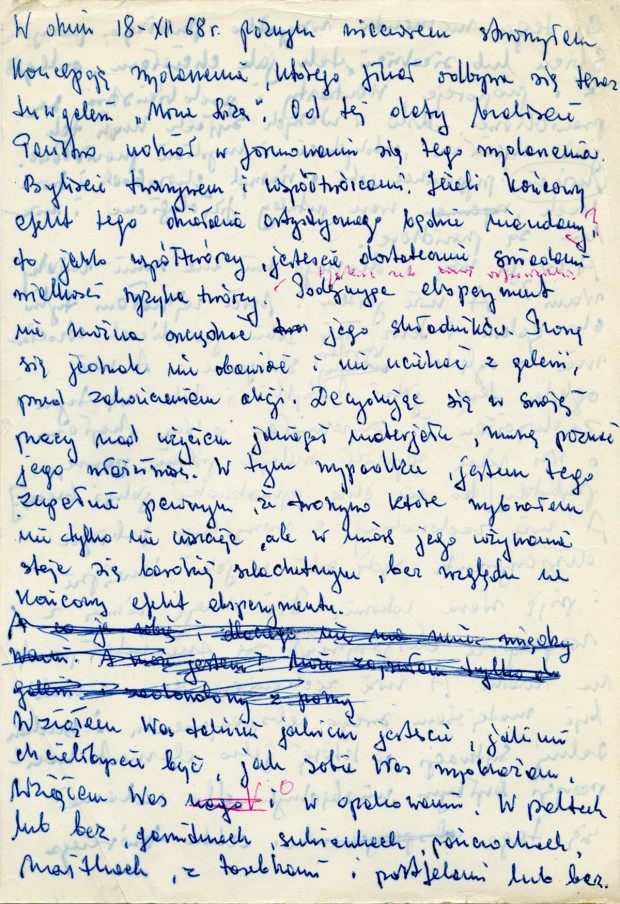 W dniu 18-XII 68 r. późnym wieczorem stworzyłem
koncepcję wydarzenia, którego finał odbywa się teraz
tu w galerii „Mona Liza". Od tej daty braliście
Państwo udział w formowaniu się tego wydarzenia.
Byliście tworzywem i współtwórcami. Jeżeli końcowy
efekt tego działania artystycznego będzie nieudany?
to jako współtwórcy, jesteście dostatecznie świadomi
wielkości ryzyka twórcy. Podejmując eksperyment
nie można oszczędzać jego składników. Proszę
się jednak nie obawiać i nie uciekać z galerii,
przed zakończeniem akcji. Decydując się w swojej
pracy nad użyciem jakiegoś materjału, muszę poznać
jego właściwości. W tym wypadku jestem tego
zupełnie pewnym, iż tworzywo które wybrałem
nie tylko nie , ale w miarę jego używania
staje się bardziej szlachetnym, bez względu na
końcowy efekt eksperymentu.
A co ja robię i dlaczego nie ma mnie między
wami. A może jestem? Może tylko
galerii i z
Wziąłem Was takimi jakimi jesteście, jakimi
chcielibyście być, jak sobie Was wyobrażam.
Wziąłem Was nago i w opakowaniu. W paltach
lub bez, garniturach, sukienkach, pończochach,
majtkach, z torebkami i portfelami lub bez.